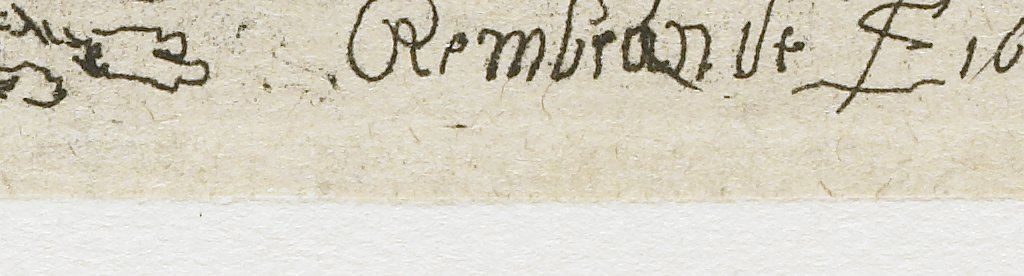 Rembrandt f 16